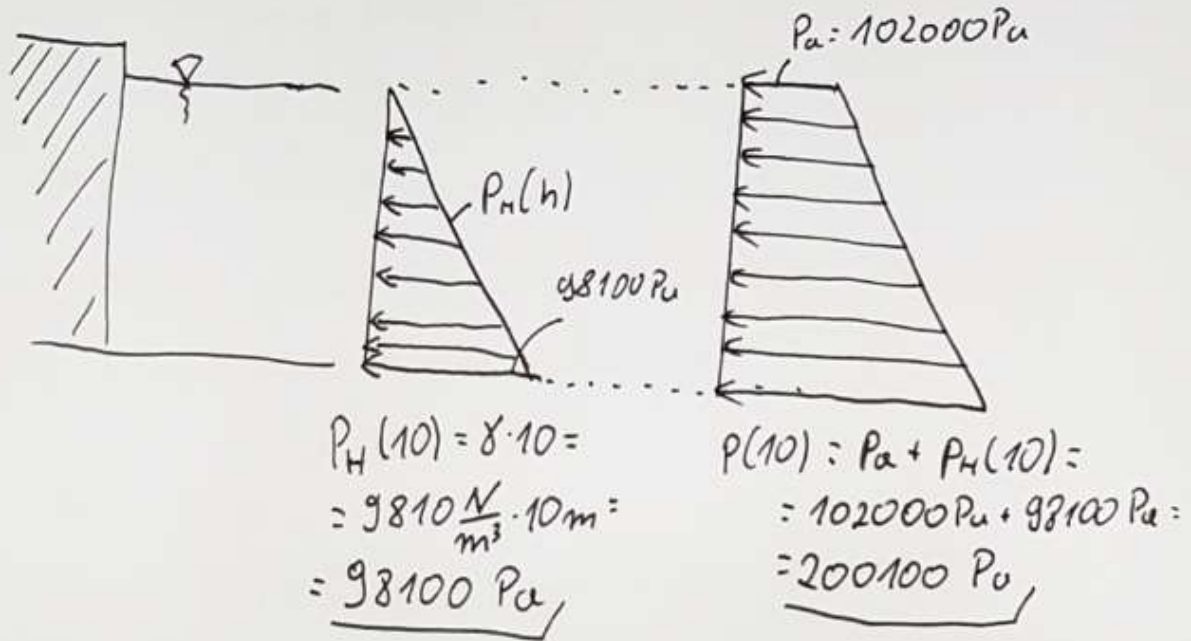 Pa = 102000 Pa
P_H(h)
98100 Pa
P_H(10) = γ·10 =
= 9810 N/m³ · 10m =
= 98100 Pa
P(10) = Pa + P_H(10) =
= 102000 Pa + 98100 Pa =
= 200100 Pa